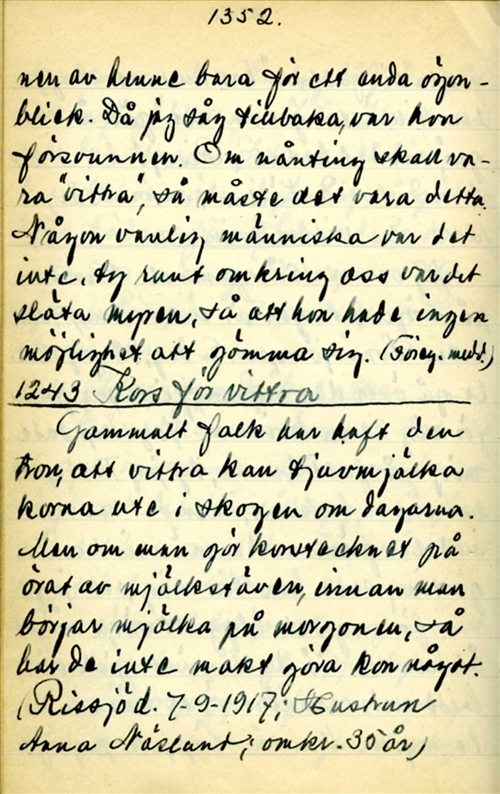 1352.
nen av henne bara för ett enda ögon-
blick. Då jag såg tillbaka, var hon
försvunnen. Om nånting skall va-
ra "vittra", så måste det vara detta.
Någon vanlig människa var det
inte, ty runt omkring oss var det
släta myren, så att hon hade ingen
möjlighet att gömma sig. (Föreg. medd.)
1243 Kors för vittra
Gammalt folk har haft den
tron, att vittra kan tjuvmjölka
korna ute i skogen om dagarna.
Men om man gör korstecknet på
örat av mjölkstäven, innan man
börjar mjölka på morgonen, så
har de inte makt göra kon något.
(Rissjöd. 7-9-1917; Hustrun
Anna Näslund; omkr. 35 år)